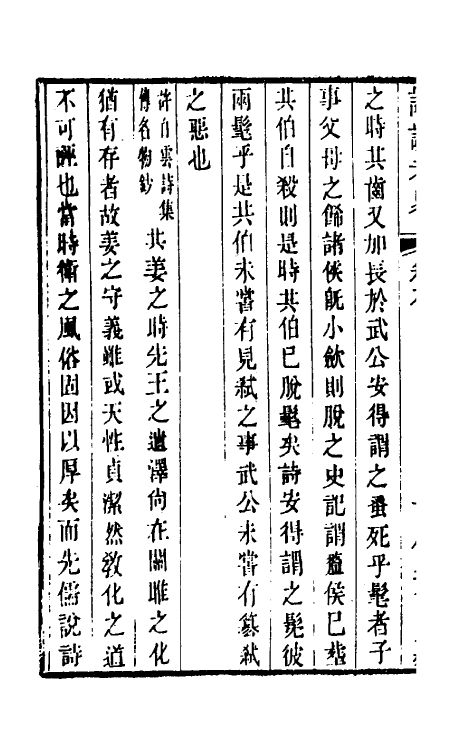 之時其齒又加長於武公安得謂之蚤死乎髦者子
事父母之飾諸侯既小斂則脫之史記謂釐侯已葬
共伯自殺則是時共伯已脫髦矣詩安得謂之髧彼
兩髦乎是共伯未嘗有見弒之事武公未嘗有篡弒
之惡也
許白雲詩集
傳名物鈔
共姜之時先王之遺澤尚在關雎之化
猶有存者故姜之守義雖或天性貞潔然敎化之道
不可誣也當時衞之風俗固因以厚矣而先儒說詩